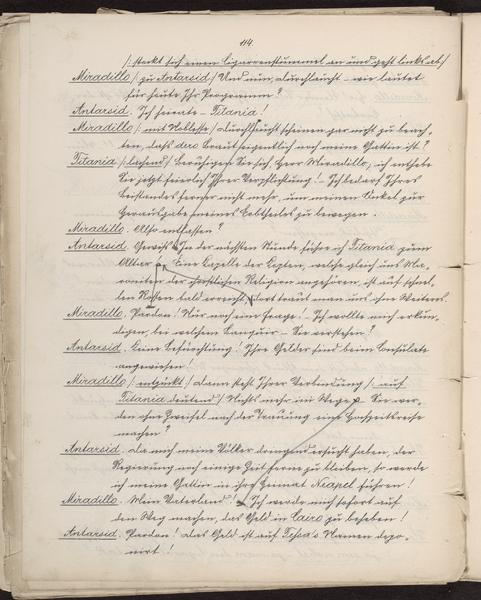 114
/: steckt sich einen Cigarrenstummel an und geht links ab :/
Miradillo /: zu Antarsid :/ Und nun, Durchlaucht – wie lautet
für heute Ihr Programm?
Antarsid. Ich heirate – Titania!
Miradillo /: mit Noblesse :/ Durchlaucht scheinen gar nicht zu beach-
ten, daß dero Braut eigentlich noch meine Gattin ist?
Titania /: lachend :/ Beruhigen Sie sich, Herr Miradillo, ich enthebe
Sie jetzt feierlich Ihrer Verpflichtung! – Ich bedarf Ihres
Beistandes ferner nicht mehr, um meinen Onkel zur
Herausgabe meines Erbtheiles zu bewegen.
Miradillo. Also entlassen?
Antarsid. Gewiß! In der nächsten Stunde führe ich Titania zum
Altar. Eine Capelle der Copten, welche gleich uns Ma-
roniten der christlichen Religion angehören, ist auf schnel-
len Rossen bald erreicht, dort traut man uns ohne Weiteres.
Miradillo. Pardon! Nur noch eine Frage! Ich wollte mich erkun-
digen, bei welchem Banquier – Sie verstehen?
Antarsid. Keine Befürchtung! Ihre Gelder sind beim Consulate
angewiesen!
Miradillo /: entzückt :/ Dann steht Ihrer Verbindung /: auf
Titania deutend :/ Nichts mehr im Wege – Sie wer-
den ohne Zweifel nach der Trauung eine Hochzeitsreise
machen?
Antarsid. Da mich meine Völker dringend ersucht haben, der
Regierung noch einige Zeit ferne zu bleiben, so werde
ich meine Gattin in ihre Heimat Neapel führen!
Miradillo. Mein Vaterland! – Ich werde mich sofort auf
den Weg machen, das Geld in Cairo zu beheben!
Antarsid. Pardon! Das Geld ist auf Tessa's Namen depo-
nirt!